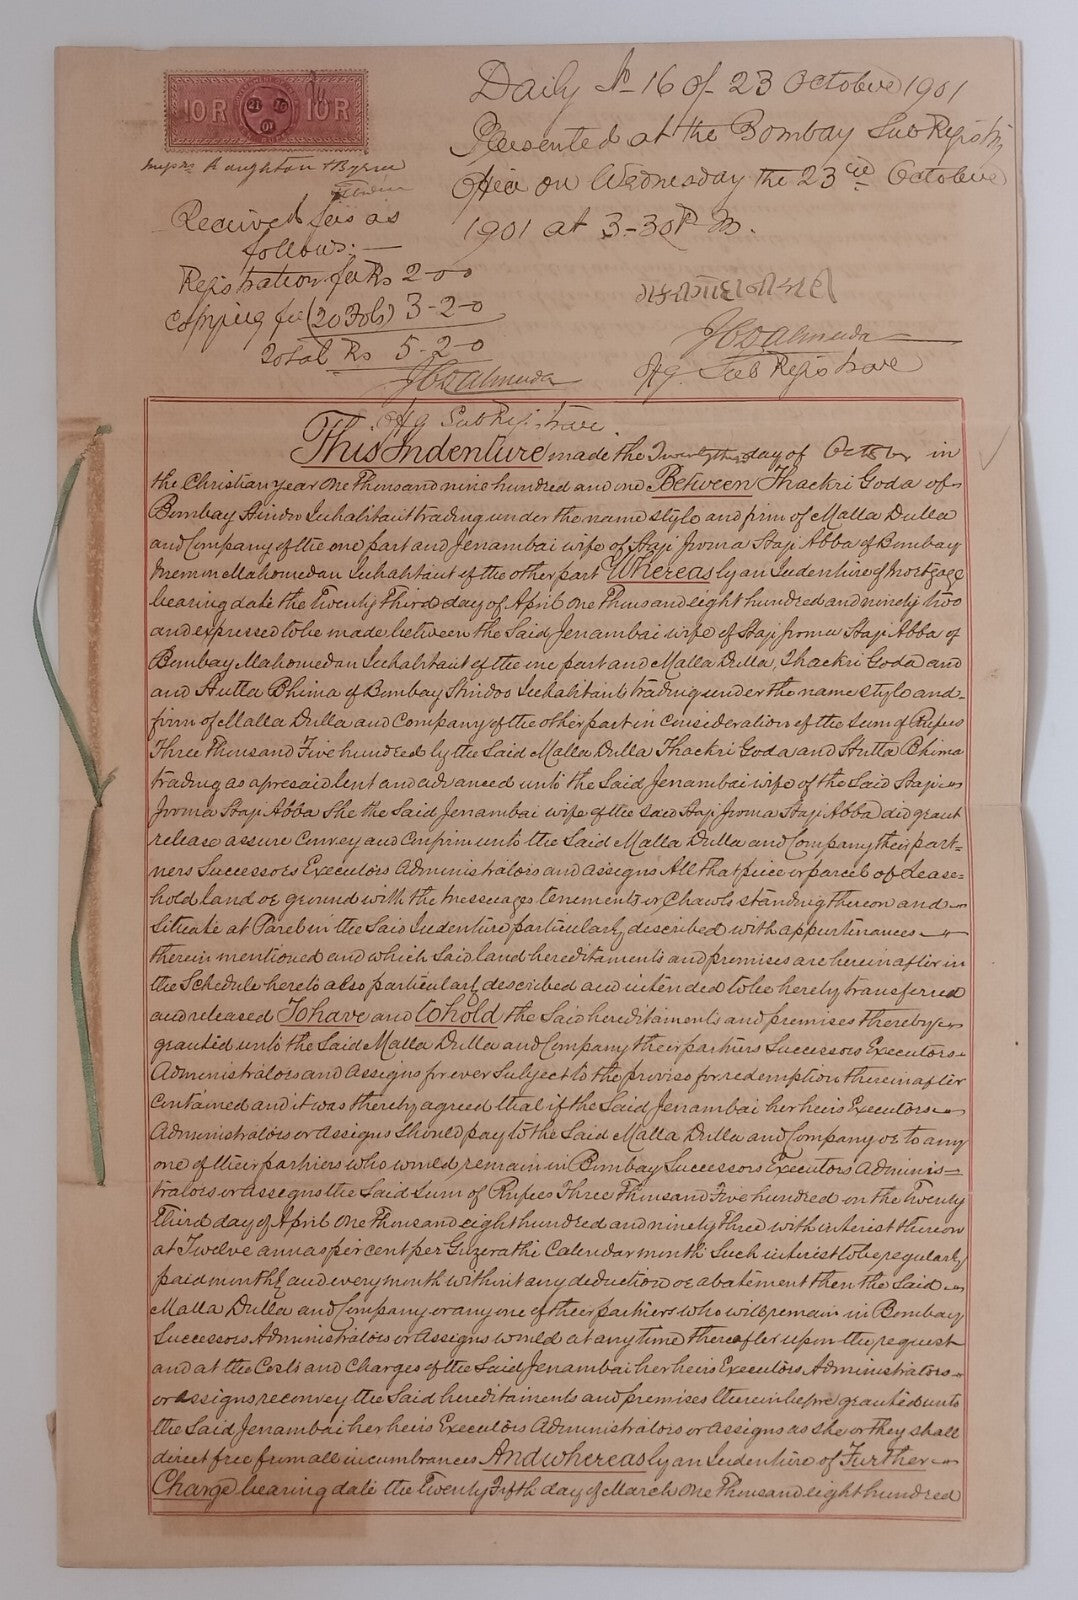 10 R 10 R
Daily No 16 of 23 October 1901
Presented at the Bombay Sub Registry
Office on Wednesday the 23rd October
1901 at 3-30 P M.
Received fees as
follows:—
Registration fee Rs 2-0-0
Copying fee (20 Fols) 3-2-0
Total Rs 5-2-0
JCD Almeida
Ag. Sub Registrar.
JCD Almeida
Ag. Sub Registrar
This Indenture made the day of October in
the Christian year One Thousand nine hundred and one Between Thackri Goda of
Bombay Hindoo Inhabitant trading under the name style and firm of Malla Dulla
and Company of the one part and Jenambai wife of Haji Jooma Haji Abba of Bombay
Memon Mahomedan Inhabitant of the other part Whereas by an Indenture of Mortgage
bearing date the Twenty Third day of April One Thousand eight hundred and ninety two
and expressed to be made between the Said Jenambai wife of Haji Jooma Haji Abba of
Bombay Mahomedan Inhabitant of the one part and Malla Dulla, Thackri Goda and
and Hutta Bhima of Bombay Hindoo Inhabitants trading under the name style and
firm of Malla Dulla and Company of the other part in Consideration of the Sum of Rupees
Three Thousand Five hundred by the Said Malla Dulla Thackri Goda and Hutta Bhima
trading as aforesaid lent and advanced unto the Said Jenambai wife of the Said Haji
Jooma Haji Abba She the Said Jenambai wife of the said Haji Jooma Haji Abba did grant
release assure Convey and Confirm unto the Said Malla Dulla and Company their part=
ners Successors Executors Administrators and assigns All that piece or parcel of Lease=
hold land or ground with the messuages tenements or Chawls standing thereon and
Situate at Parel in the Said Indenture particularly described with appurtinances
therein mentioned and which Said land hereditaments and premises are hereinafter in
the Schedule hereto also particularly described and intended to be hereby transferred
and released To have and to hold the Said hereditaments and premises thereby
granted unto the Said Malla Dulla and Company their partners Successors Executors
Administrators and Assigns for ever Subject to the proviso for redemption thereinafter
Contained and it was thereby agreed that if the Said Jenambai her heirs Executors
Administrators or Assigns Should pay to the Said Malla Dulla and Company or to any
one of their partners who would remain in Bombay Successors Executors Adminis=
trators or assigns the Said Sum of Rupees Three Thousand Five hundred on the Twenty
Third day of April One Thousand eight hundred and ninety Three with interest thereon
at Twelve annas per cent per Guzerathi Calendar month Such interest to be regularly
paid monthly and every month without any deduction or abatement then the Said
Malla Dulla and Company or any one of their partners who will remain in Bombay
Successors Administrators or Assigns would at any time thereafter upon the request
and at the Costs and Charges of the Said Jenambai her heirs Executors Administrators
or assigns reconvey the Said hereditaments and premises thereinbefore granted unto
the Said Jenambai her heirs Executors Administrators or Assigns as She or they shall
direct free from all incumbrances And whereas by an Indenture of Further
Charge bearing date the Twenty Fifth day of March One Thousand eight hundred